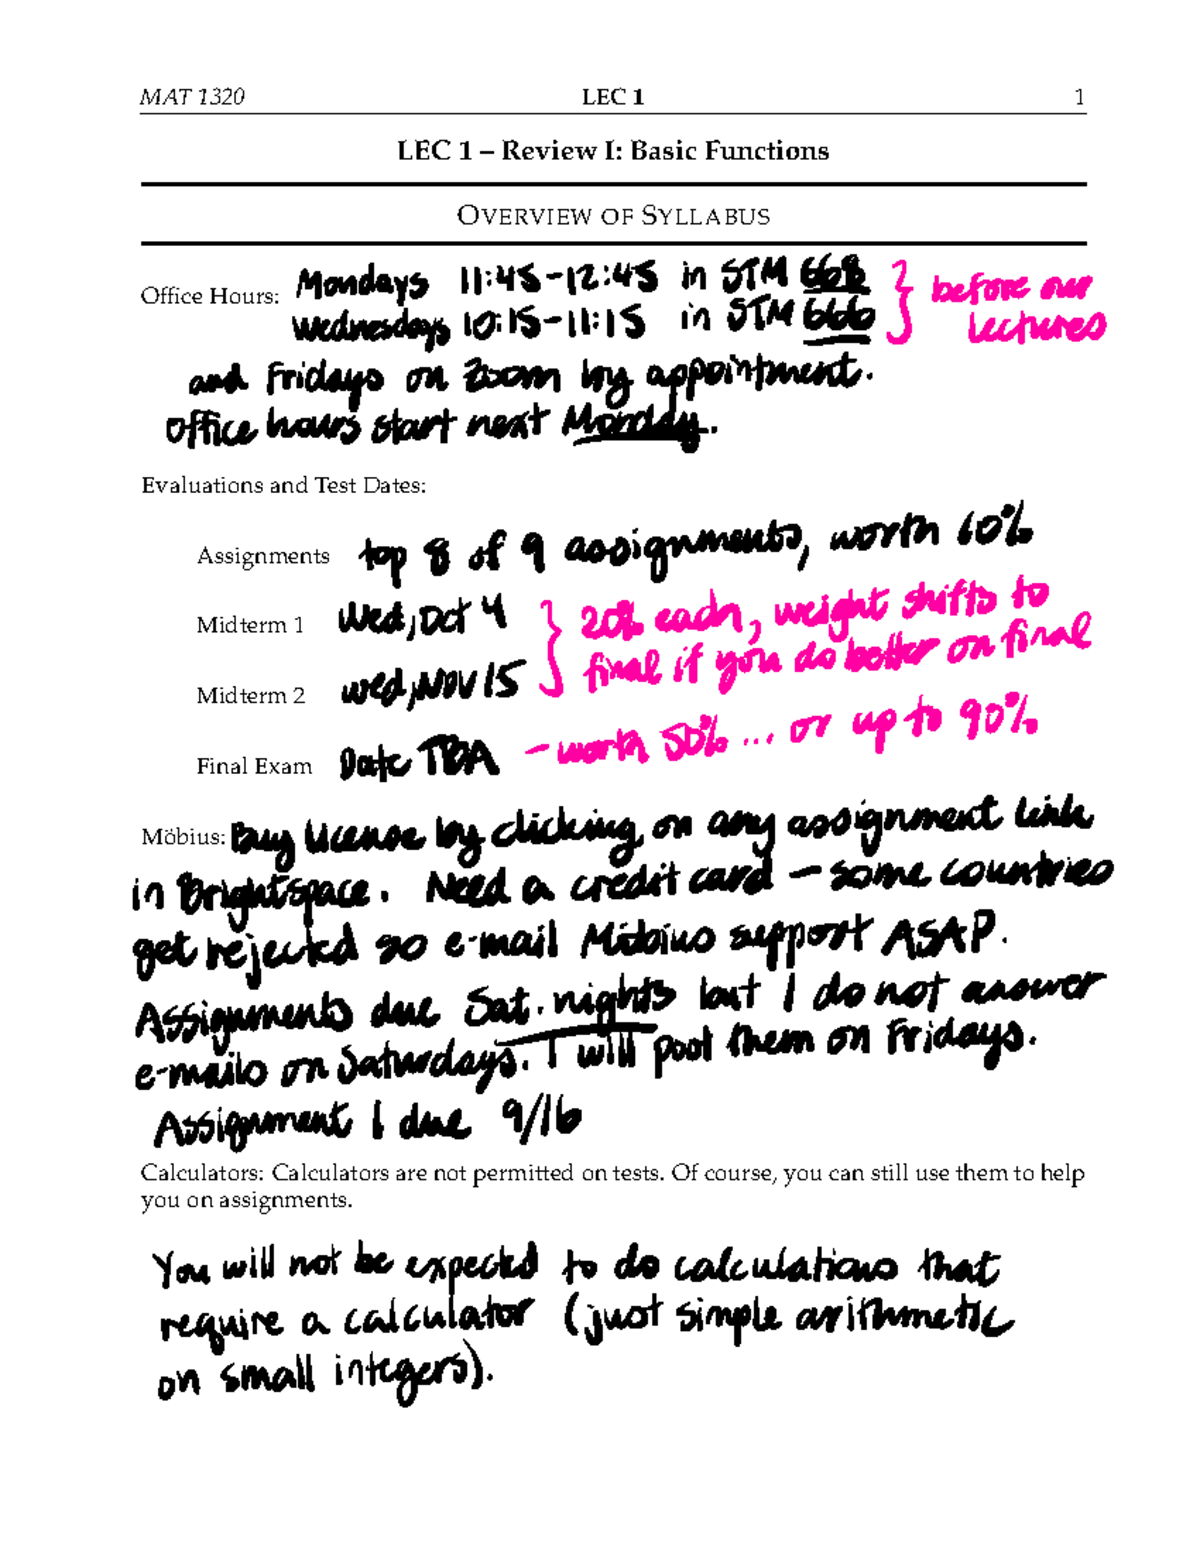 MAT 1320 LEC 1 1
LEC 1 – Review I: Basic Functions
OVERVIEW OF SYLLABUS
Office Hours: Mondays 11:45-12:45 in STM 668 } before our
Wednesdays 10:15-11:15 in STM 666 } lectures
and Fridays on Zoom by appointment.
Office hours start next Monday.
Evaluations and Test Dates:
Assignments top 8 of 9 assignments, worth 10%
Midterm 1 Wed, Oct 4 } 20% each, weight shifts to
Midterm 2 Wed, Nov 15 } final if you do better on final
Final Exam Date TBA - worth 50% ... or up to 90%
Möbius: Buy license by clicking on any assignment link
in Brightspace. Need a credit card – some countries
get rejected so e-mail Möbius support ASAP.
Assignments due Sat. nights but I do not answer
e-mails on Saturdays. I will post them on Fridays.
Assignment 1 due 9/16
Calculators: Calculators are not permitted on tests. Of course, you can still use them to help
you on assignments.
You will not be expected to do calculations that
require a calculator (just simple arithmetic
on small integers).